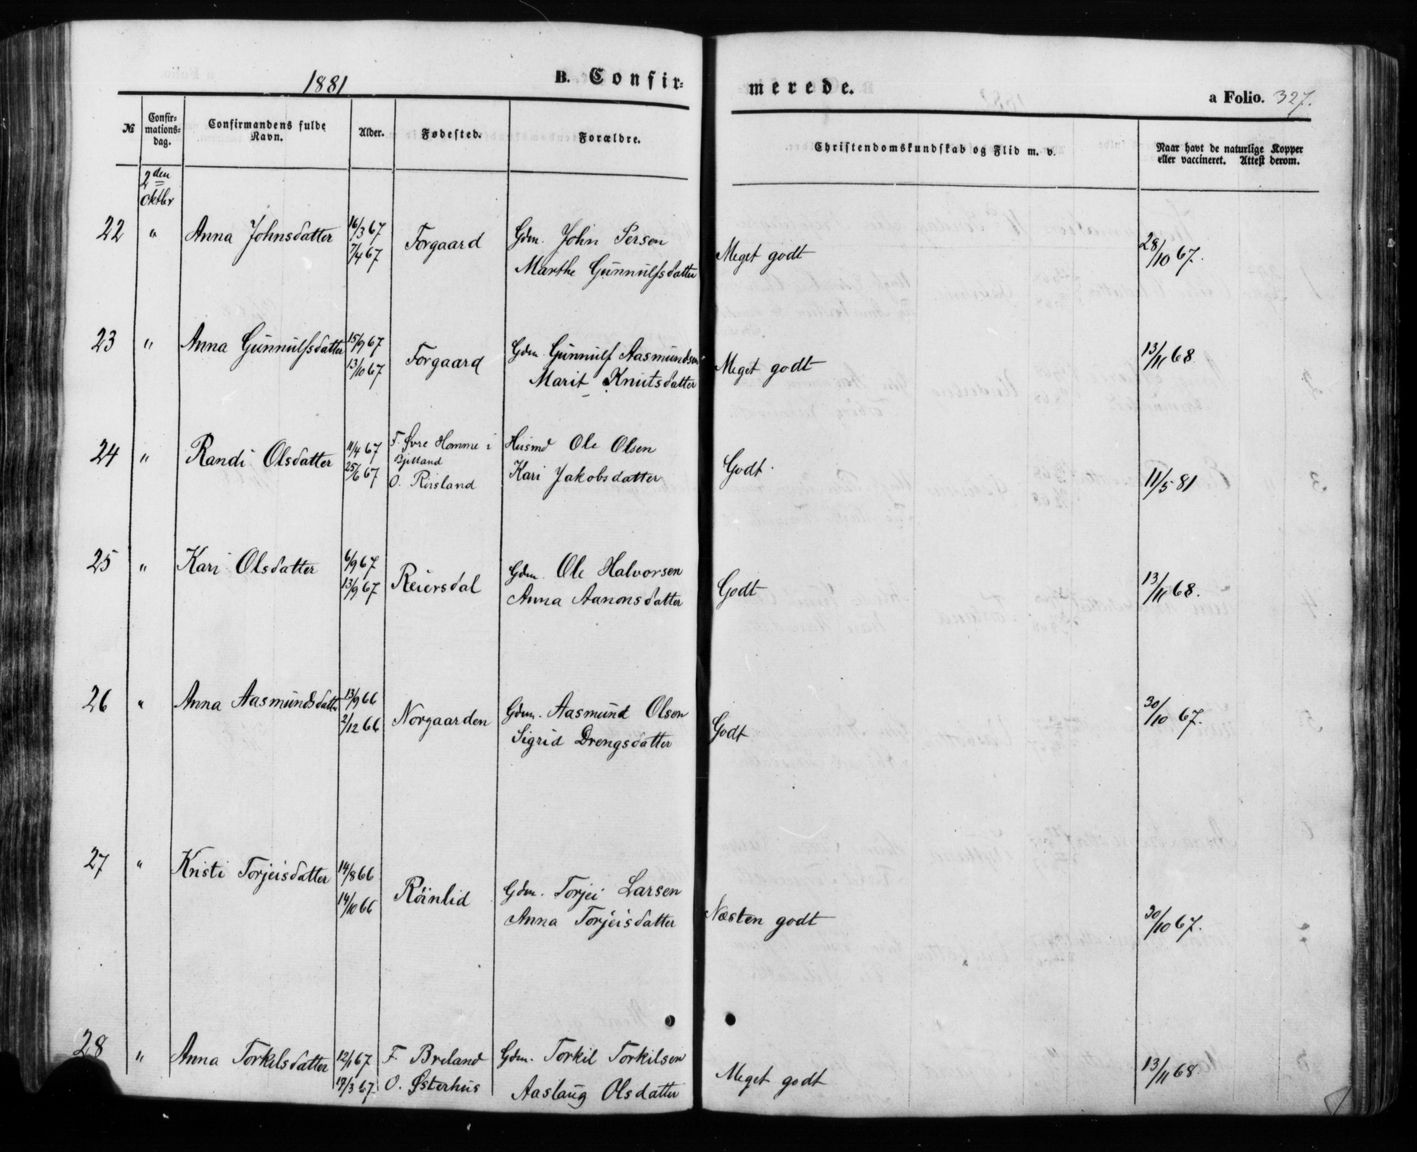 1881
B. Confir-
merede.
a Folio. 327.
№
Confir-
mations-
dag.
Confirmandens fulde
Navn.
Alder.
Fødested.
Forældre.
Christendomskundskab og Flid m. v.
Naar havt de naturlige Kopper
eller vaccineret. Attest derom.
2den
Oktbr
22 " Anna Johnsdatter 16/3 67 Torgaard Gdm. John Person Meget godt 28/10 67.
7/4 67 Marthe Gunnulfsdatter
23 " Anna Gunnulfsdatter 15/9 67 Torgaard Gdm. Gunnulf Aasmundsen Meget godt 13/11 68
13/10 67 Marit Knutsdatter
24 " Randi Olsdatter 11/4 67 F. Øvre Homme i Husmd Ole Olsen Godt 11/5 81
25/6 67 Bjelland Kari Jakobsdatter
O. Røisland
25 " Kari Olsdatter 6/9 67 Reiersdal Gdm. Ole Halvorsen Godt 13/11 68.
13/9 67 Anna Aanonsdatter
26 " Anna Aasmundsdatter 13/9 66 Norgaarden Gdm. Aasmund Olson Godt 30/10 67.
2/12 66 Sigrid Drengsdatter
27 " Kristi Torjeisdatter 14/8 66 Röinlid Gdm. Torjei Larsen Næsten godt 30/10 67.
14/10 66 Anna Torjeisdatter
28 " Anna Torkilsdatter 12/1 67 F. Breland Gdm. Torkil Torkilsen Meget godt 13/11 68
17/3 67. O. Østerhus Aaslaug Olsdatter